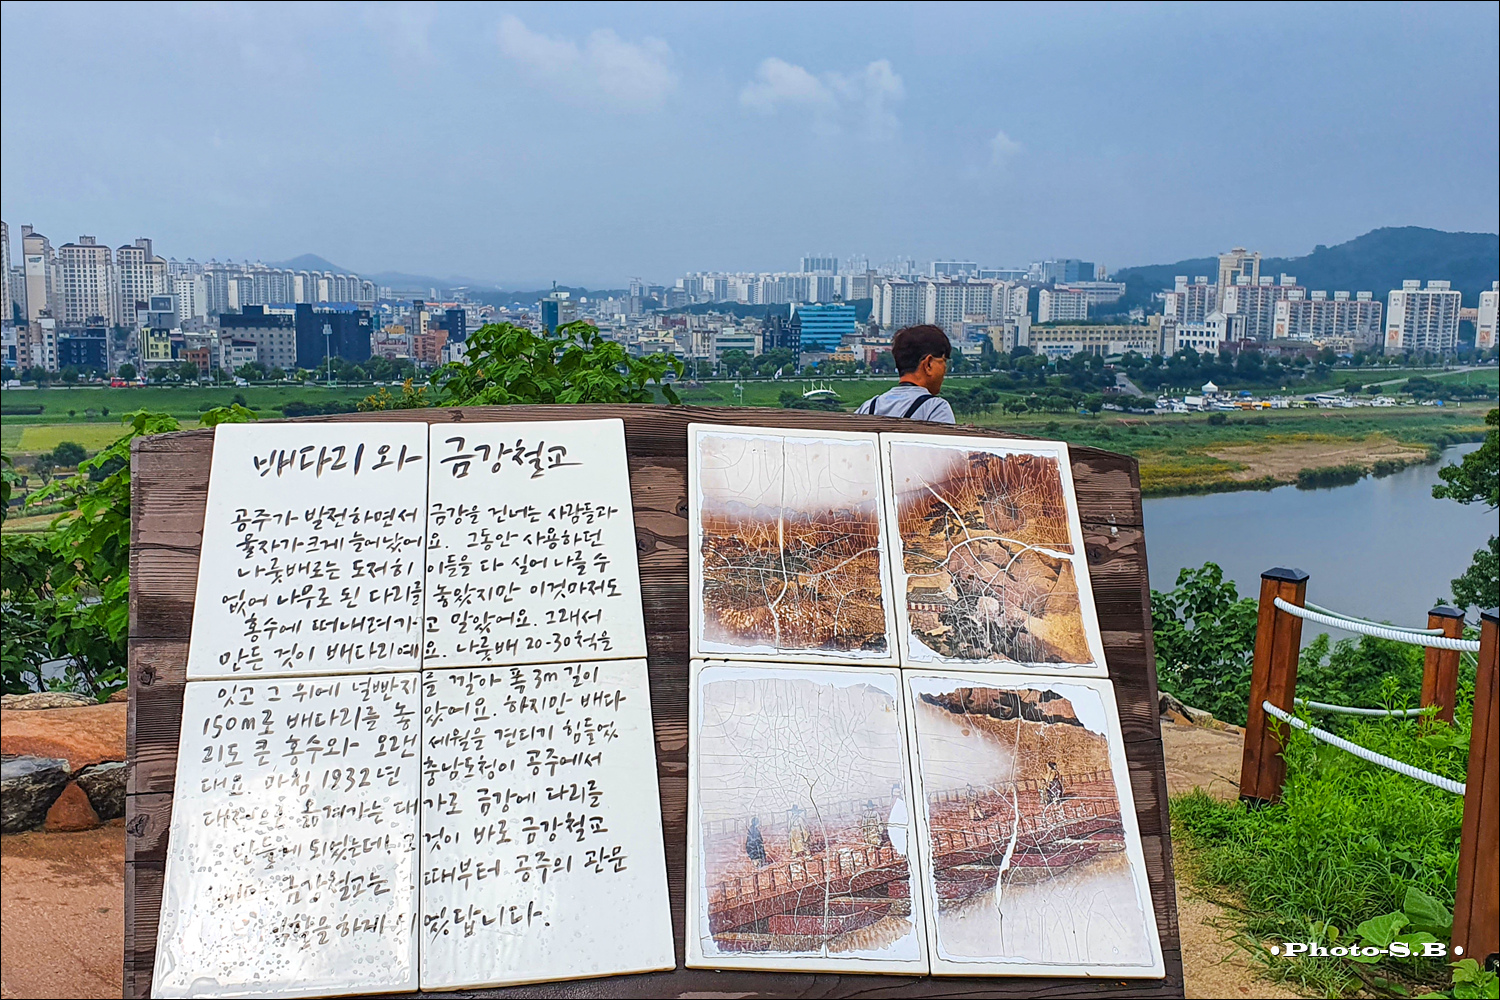 배다리와 금강철교
공주가 발전하면서 금강을 건너는 사람들과
물자가 크게 늘어났어요. 그동안 사용하던
나룻배로는 도저히 이들을 다 실어 나를 수
없어 나무로 된 다리를 놓았지만 이것마저도
홍수에 떠내려가고 말았어요. 그래서
만든 것이 배다리예요. 나룻배 20-30척을
잇고 그 위에 널빤지를 깔아 폭 3m 길이
150m로 배다리를 놓았어요. 하지만 배다
리도 큰 홍수와 오랜 세월을 견디기 힘들었
대요. 마침 1932년 충남도청이 공주에서
대전으로 옮겨가는 대가로 금강에 다리를
만들게 되었는데 그것이 바로 금강철교
금강철교는 그때부터 공주의 관문
역할을 하게 되었답니다.
•Photo-S.B•